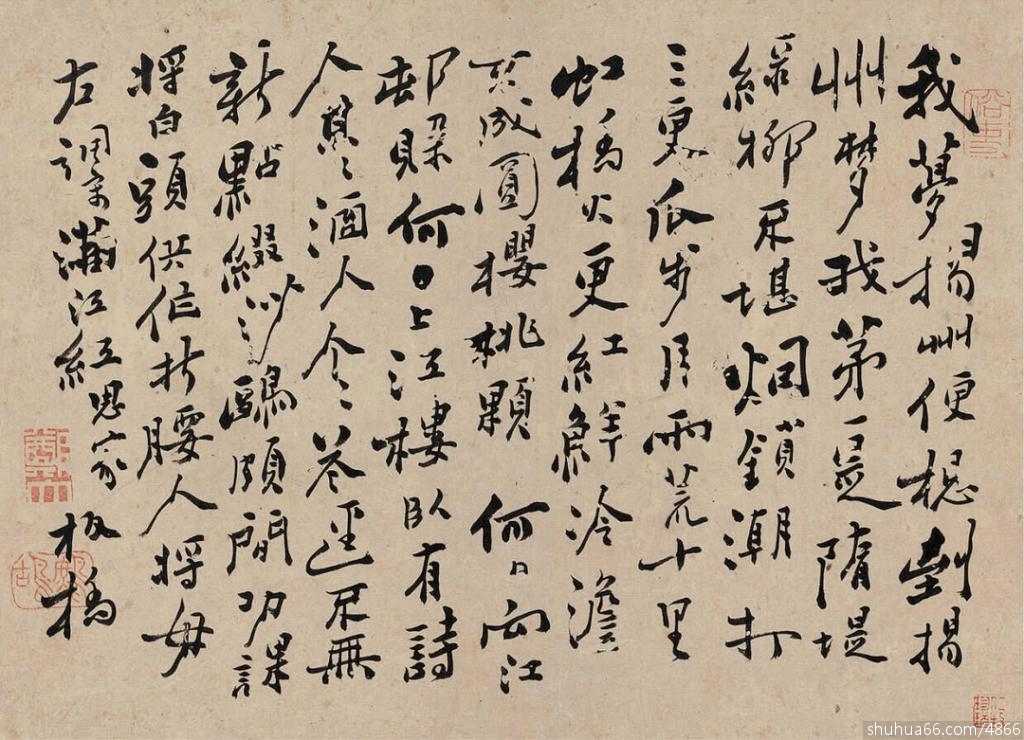 我夢揚州便想到揚
州梦我苐一是隋堤
綠柳不堪烟鎖潮打
三更瓜步月雨荒十里
虹橋火更紅鮮冷澹
不成圓櫻桃顆何日向江
邨躲何日上江樓臥有詩
人某〻酒人个〻花徑不無
新點綴沙鷗頗閒功課
將白頭供作折腰人將毋
左調寄滿江紅思家板橋
俗吏
鄭燮
shuhua66.com/4866